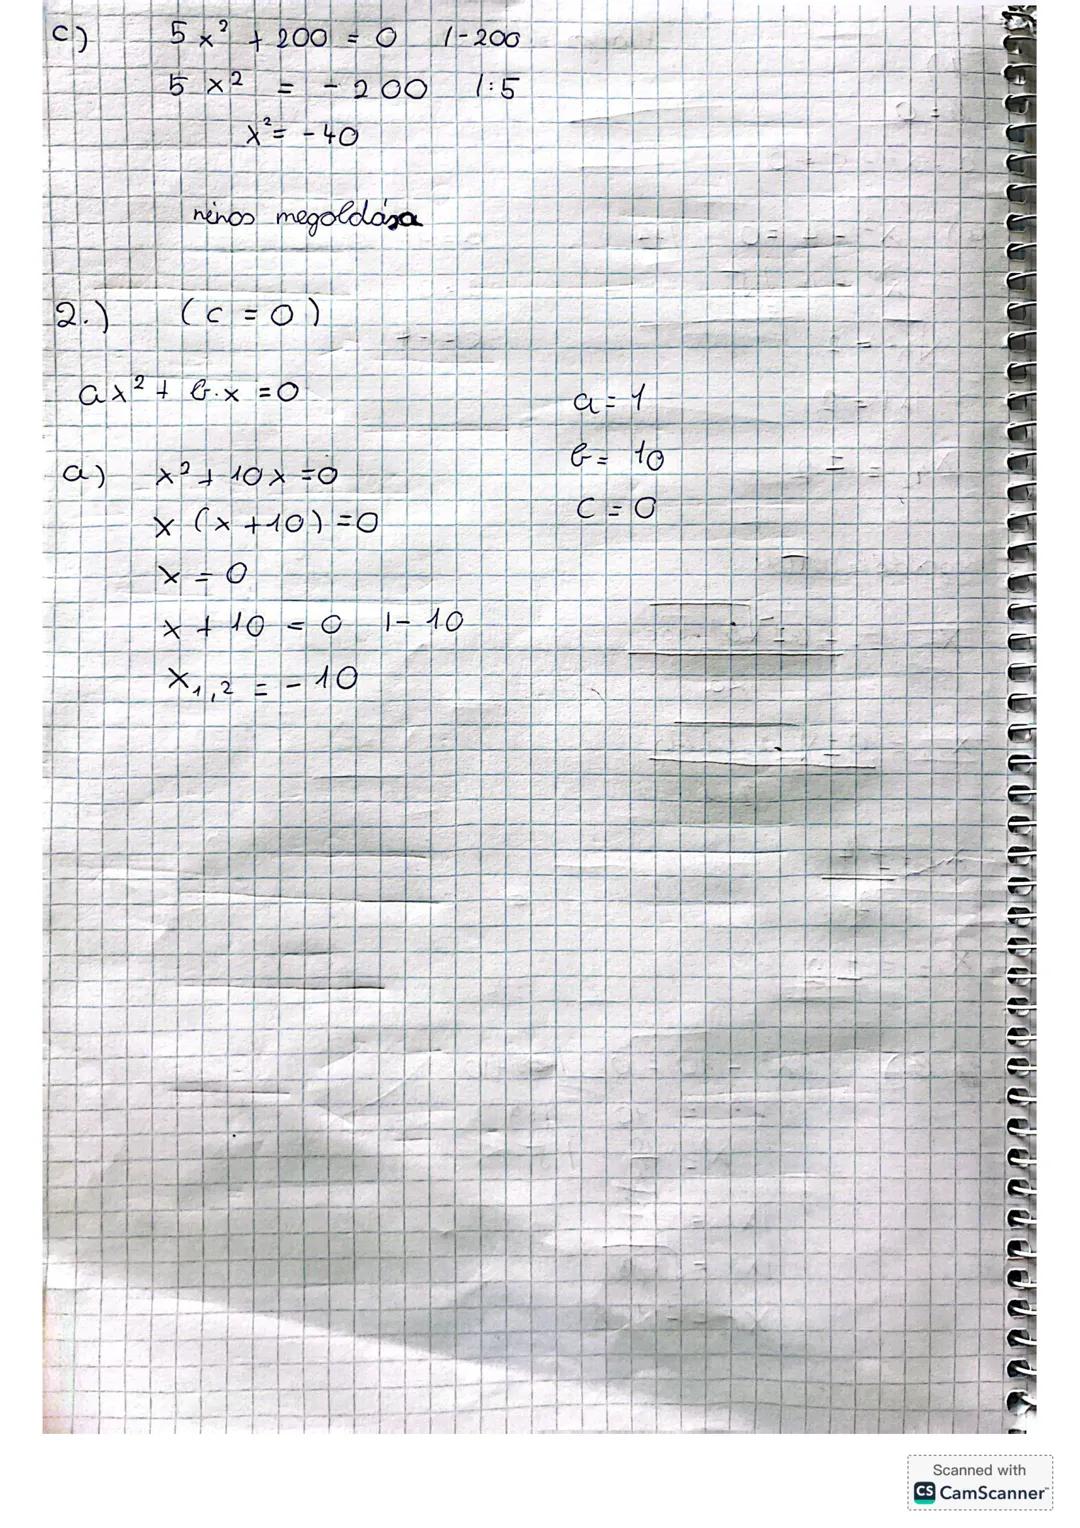 c) 5x² + 200 = 0 /-200
5x² = -200 /:5
x² = -40
nincs megoldása
2.) (c = 0)
ax² + b·x = 0
a = 1
b = 10
c = 0
a) x² + 10x = 0
x (x + 10) = 0
x = 0
x + 10 = 0 /- 10
x₁,₂ = - 10
Scanned with
CS CamScanner